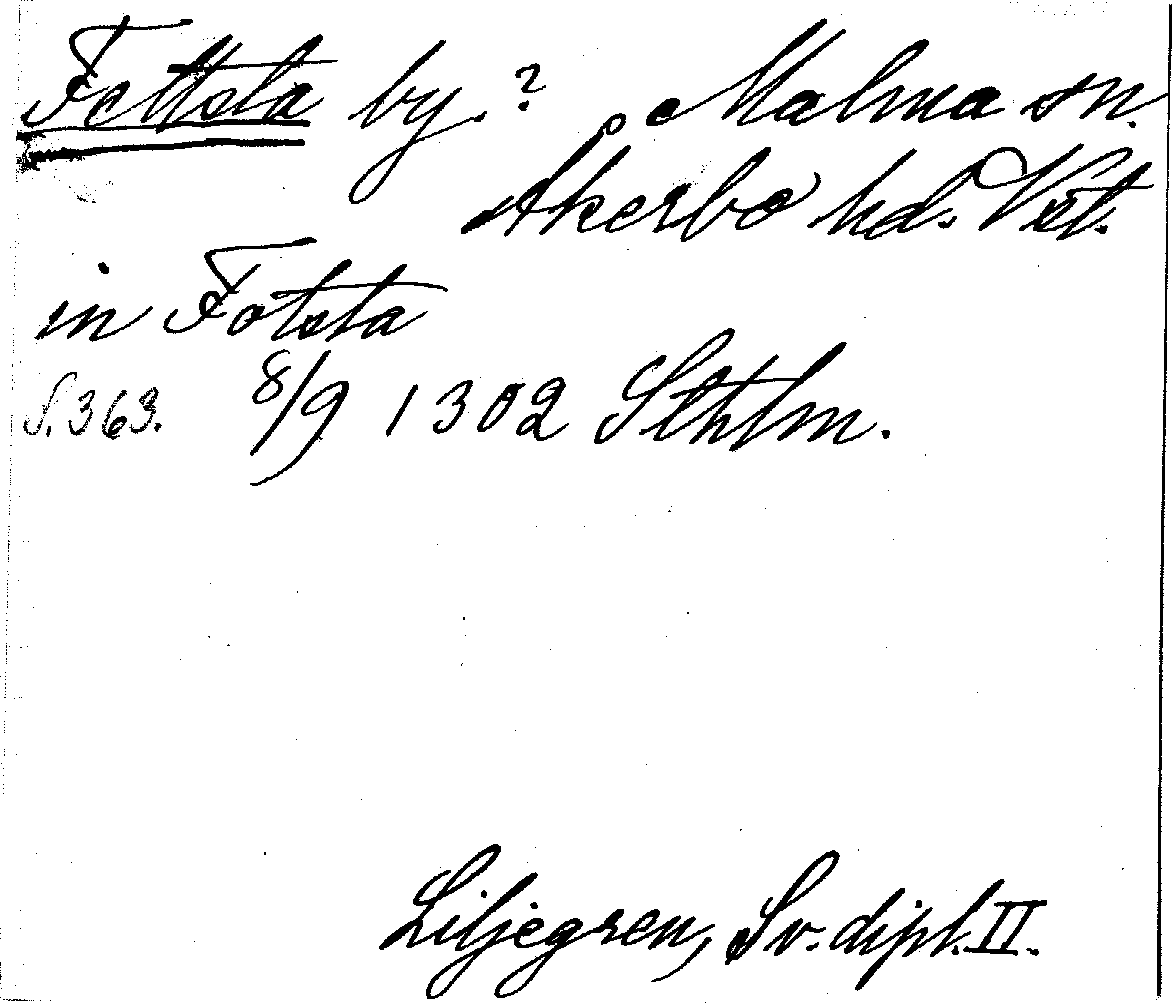 Fettsta by.? Malma sn.
Åkerbo hd. Vstl.
in Fotsta
S. 363. 8/9 1302 Sthlm.
Liljegren, Sv. dipl. II.